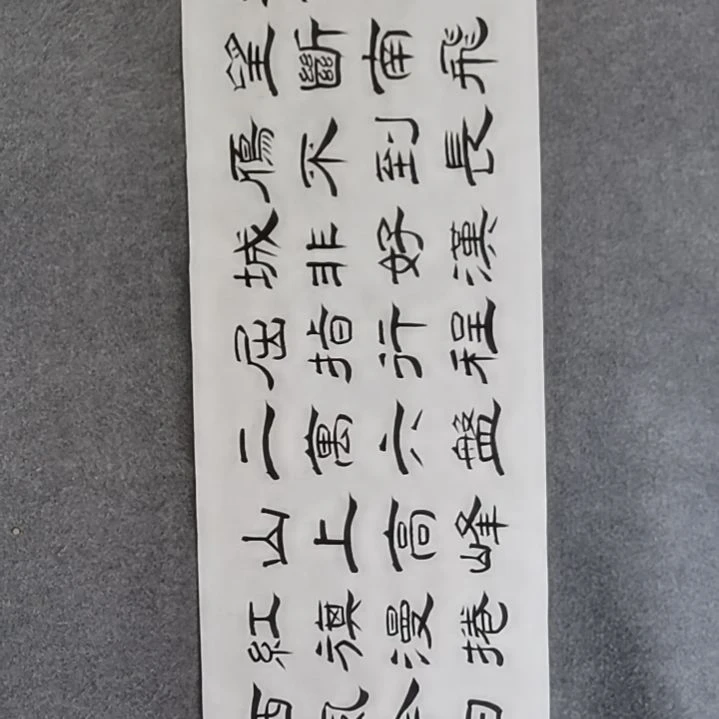 望斷南飛
鴈不到長
城非好漢
屈指行程
二萬六盤
山上高峰
紅旗漫捲
西風今日